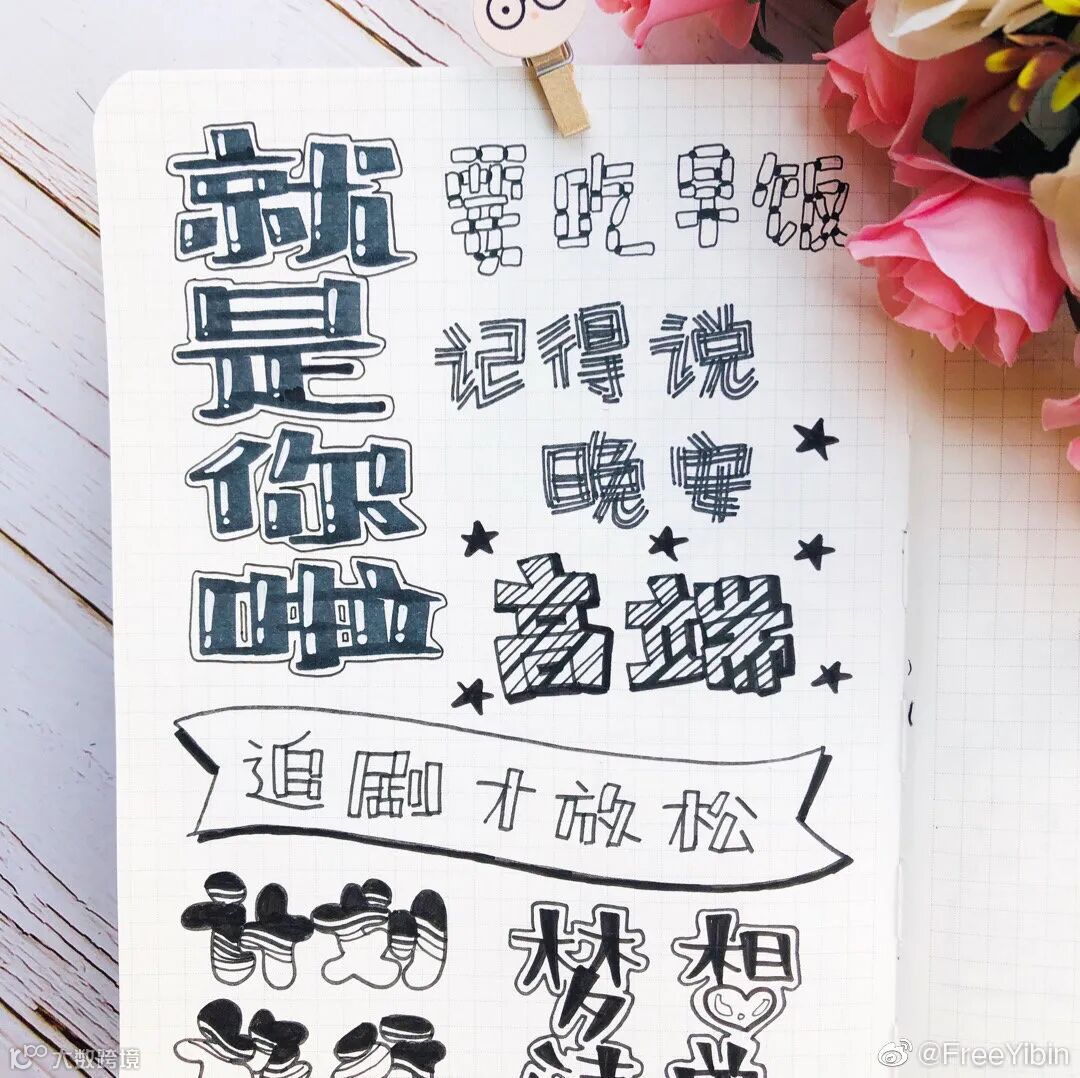 就
是
你
啦
要吃早饭
记得说
晚安
高端
追剧才放松
计划
梦想
大数跨境
@FreeYibin